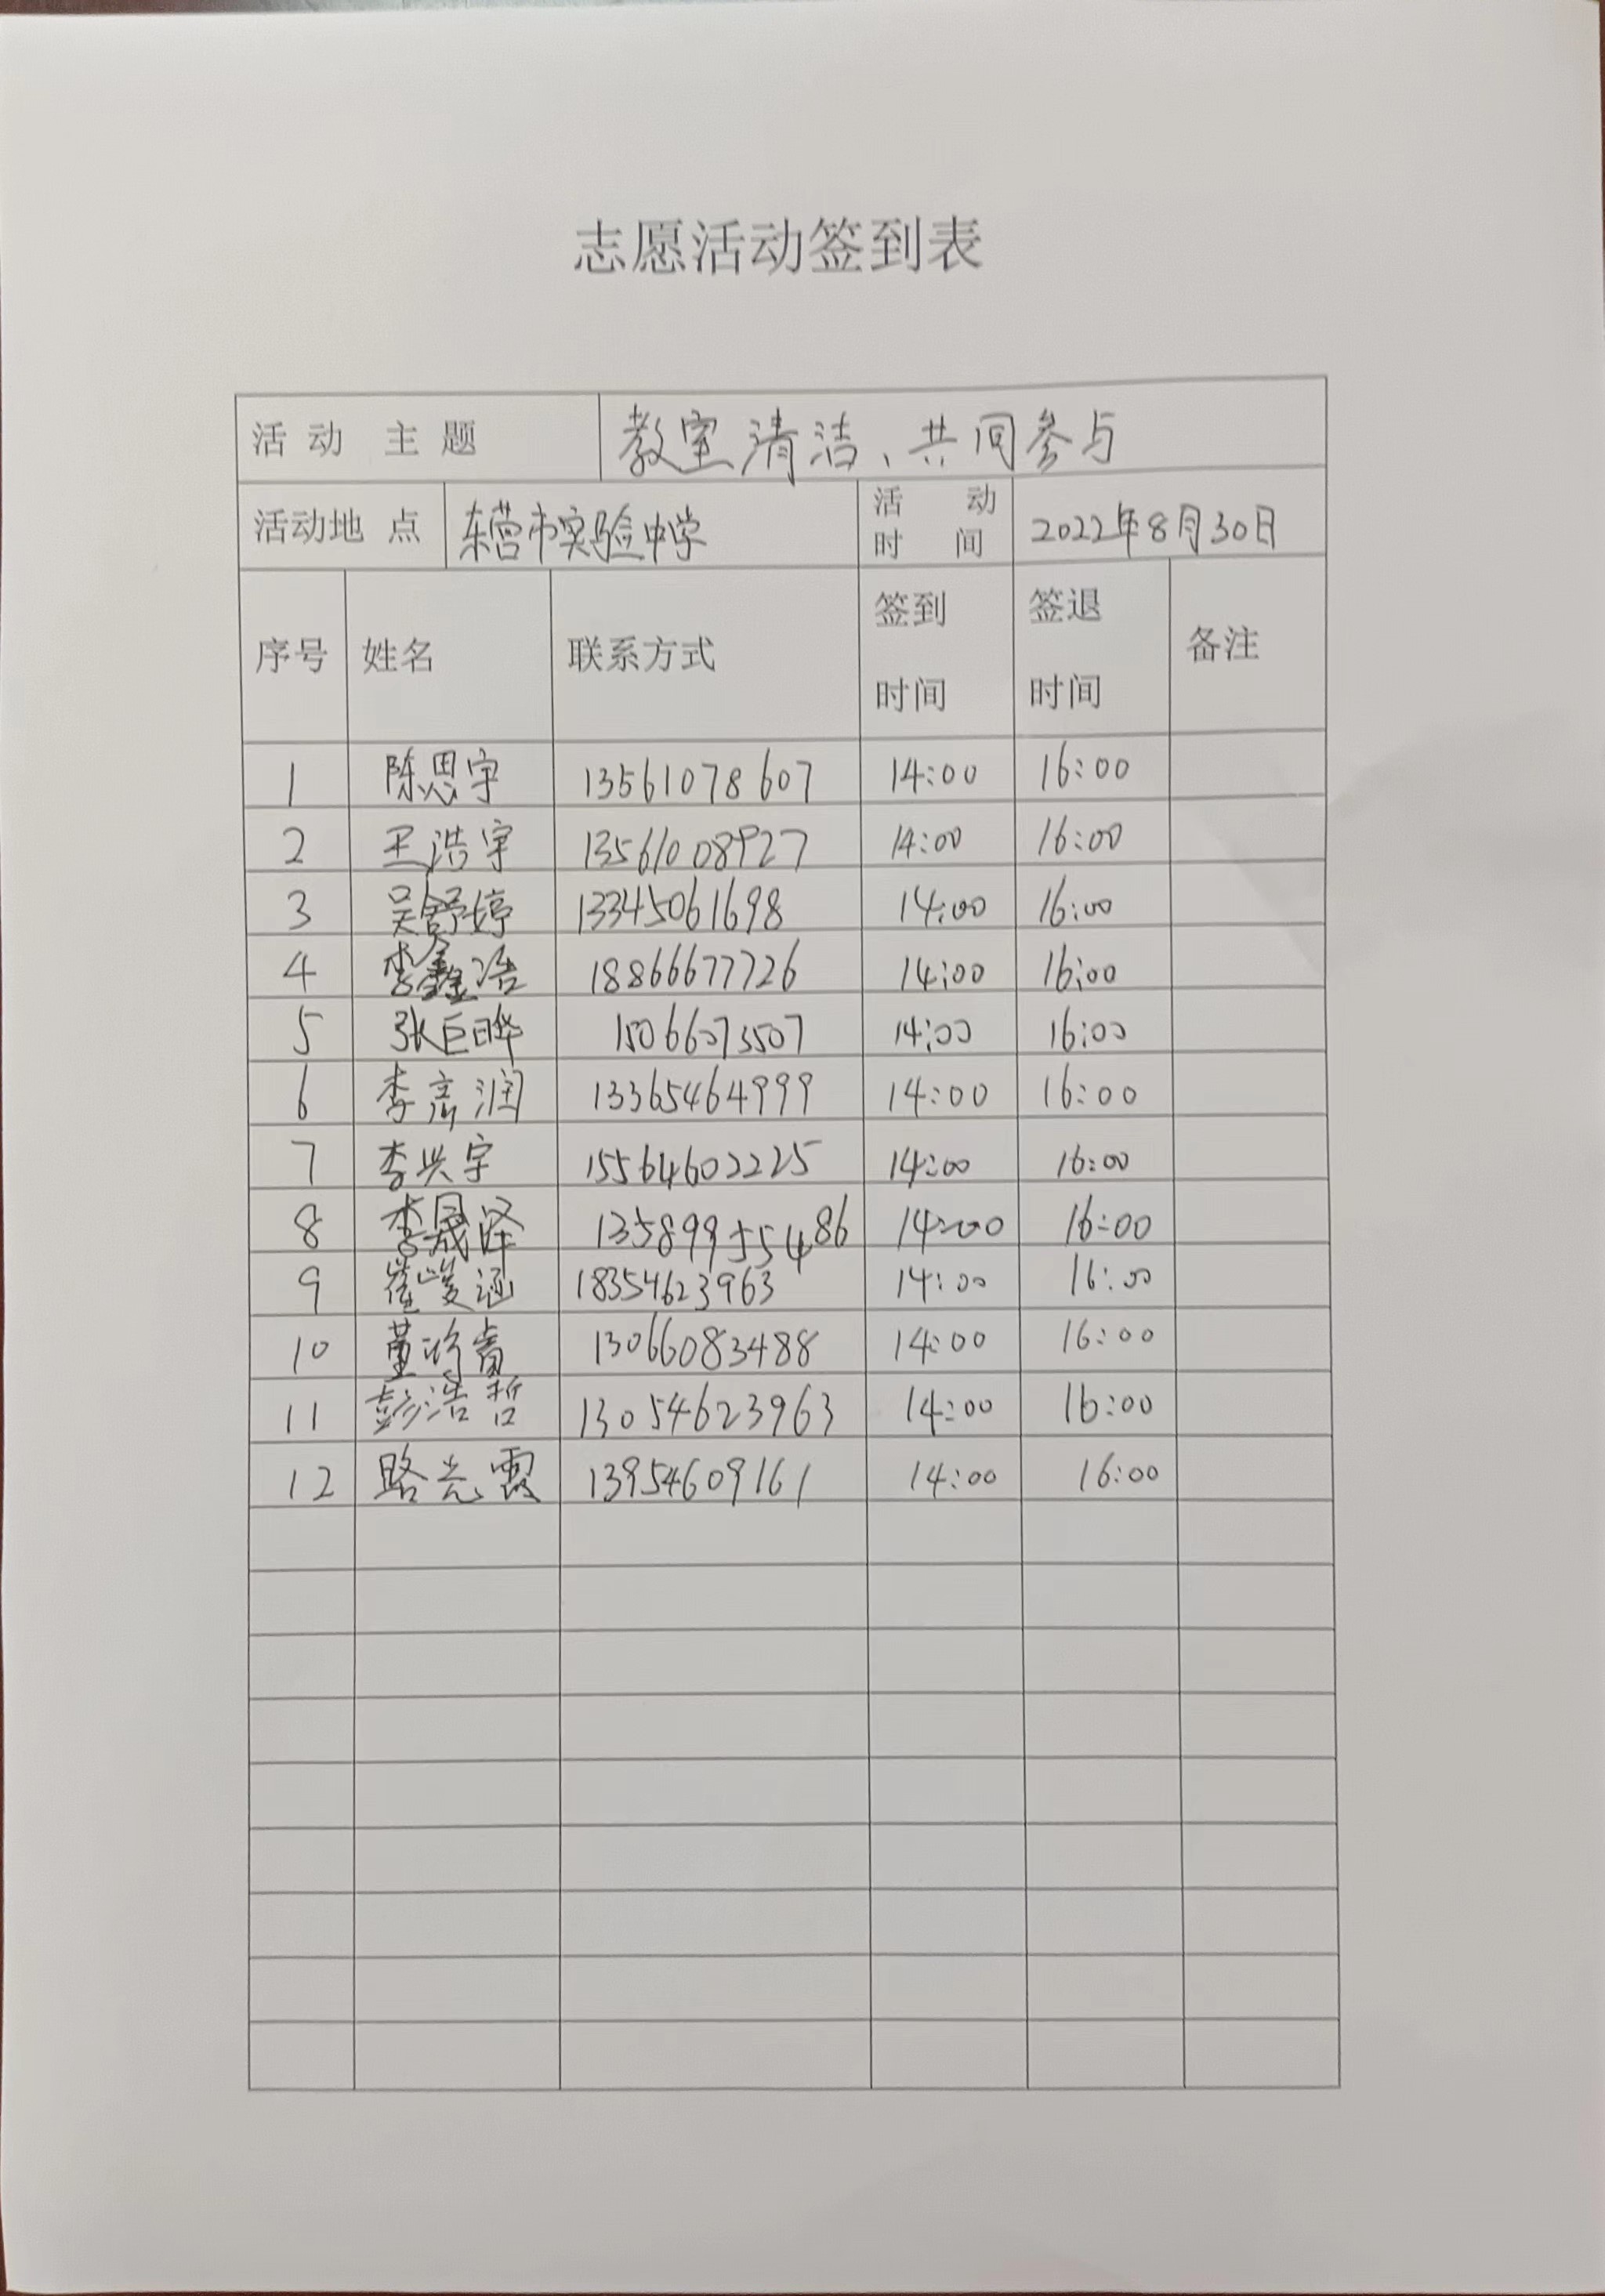 志愿活动签到表
活动 主题 教室清洁、共同参与
活动地点 东营市实验中学 活动时间 2022年8月30日
序号 姓名 联系方式 签到时间 签退时间 备注
1 陈思宇 13561078607 14:00 16:00
2 王浩宇 13561008927 14:00 16:00
3 吴舒婷 13345061698 14:00 16:00
4 李鑫浩 18866677726 14:00 16:00
5 张巨晔 15066073507 14:00 16:00
6 李高润 13365464999 14:00 16:00
7 李兴宇 15564602225 14:00 16:00
8 李晟泽 13589955486 14:00 16:00
9 崔峻涵 18354623963 14:00 16:00
10 董 13066083488 14:00 16:00
11 彭浩哲 13054623963 14:00 16:00
12 路光霞 13954609161 14:00 16:00